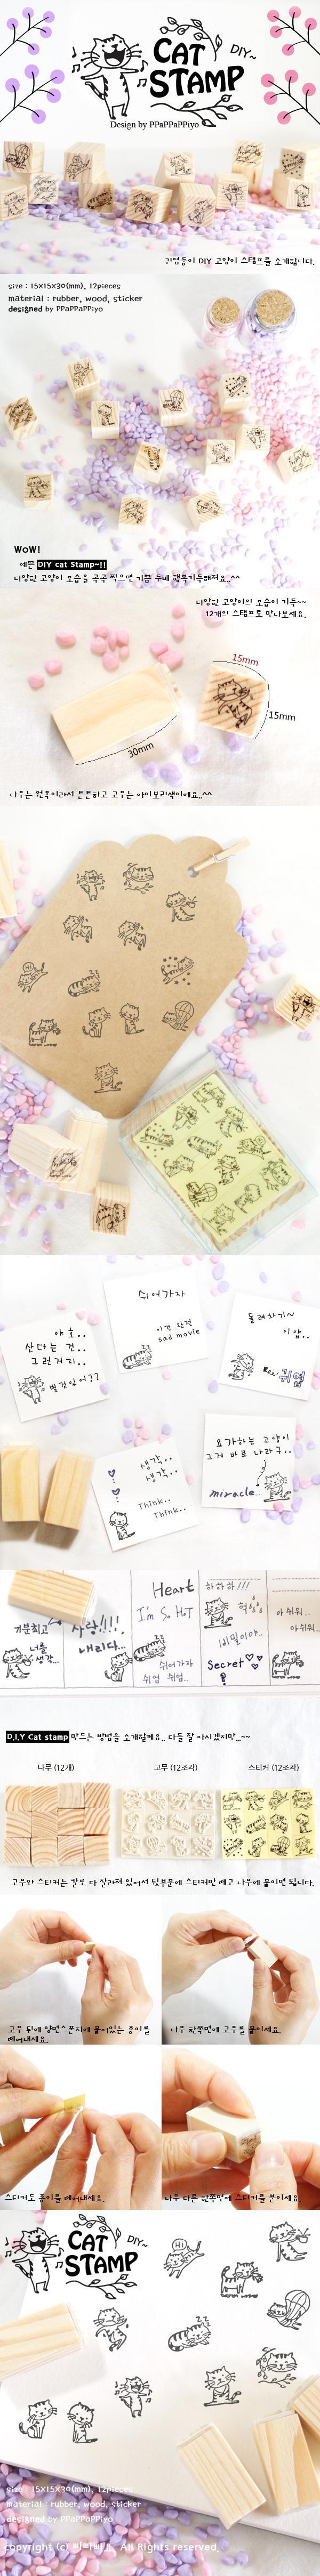 CAT
STAMP
DIY~
Design by PPaPPaPPiyo
귀염둥이 DIY 고양이 스탬프를 소개합니다.
size : 15X15X30(mm), 12pieces
material : rubber, wood, sticker
designed by PPaPPaPPiyo
WoW!
예쁜 DIY cat Stamp~!!
다양한 고양이 모습을 콕콕 찍으면 기쁨 두배 행복가득해져요..^^
다양한 고양이의 모습이 가득~~
12개의 스탬프로 만나보세요.
15mm
15mm
30mm
나무는 원목이라서 튼튼하고 고무는 아이보리색이에요..^^
야호..
산다는 건..
그런거지..
별거있어??
쉬어가자
이건 완전
sad movie
돌려하기~
이얍..
귀엽
생각..
생각..
Think..
Think..
요가하는 고양이
그게 바로 나라구..
miracle..
기분최고
너를
생각..
사랑!!!
내리다...
Heart
I'm So HoT
쉬어가자
쉬엄 쉬엄..
하하하!!!
헉
비밀이야..
Secret
아 쉬워..
아쉬워..
D.I.Y Cat stamp 만드는 방법을 소개할께요.. 다들 잘 아시겠지만...~~
나무 (12개)
고무 (12조각)
스티커 (12조각)
고무와 스티커는 칼로 다 잘라져 있어서 뒷부분에 스티커만 떼고 나무에 붙이면 됩니다.
고무 뒤에 양면스폰지에 붙어있는 종이를
떼어내세요.
나무 한쪽면에 고무를 붙이세요.
스티커도 종이를 떼어내세요.
나무 다른 한쪽면에 스티커를 붙이세요.
CAT
STAMP
DIY~
Hi
size : 15X15X30(mm), 12pieces
material : rubber, wood, sticker
designed by PPaPPaPPiyo
All Rights reserved.